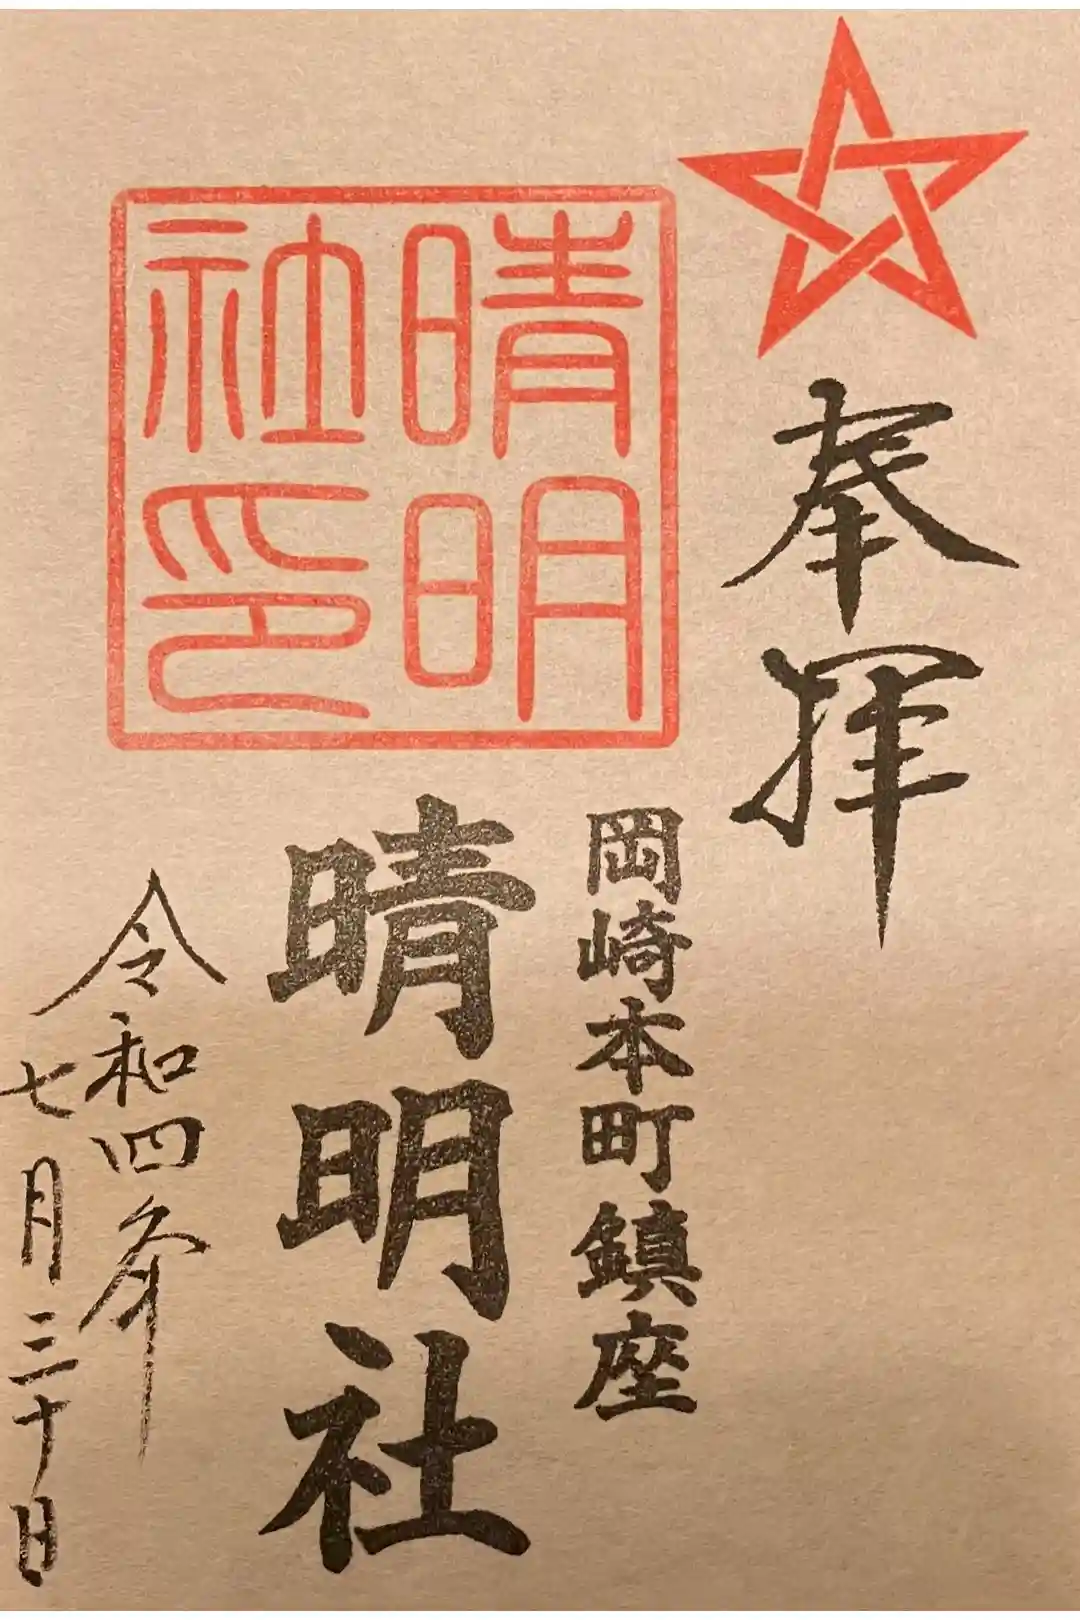 奉拝
岡崎本町鎮座
晴明社印
晴明社
令和四年
七月三十日